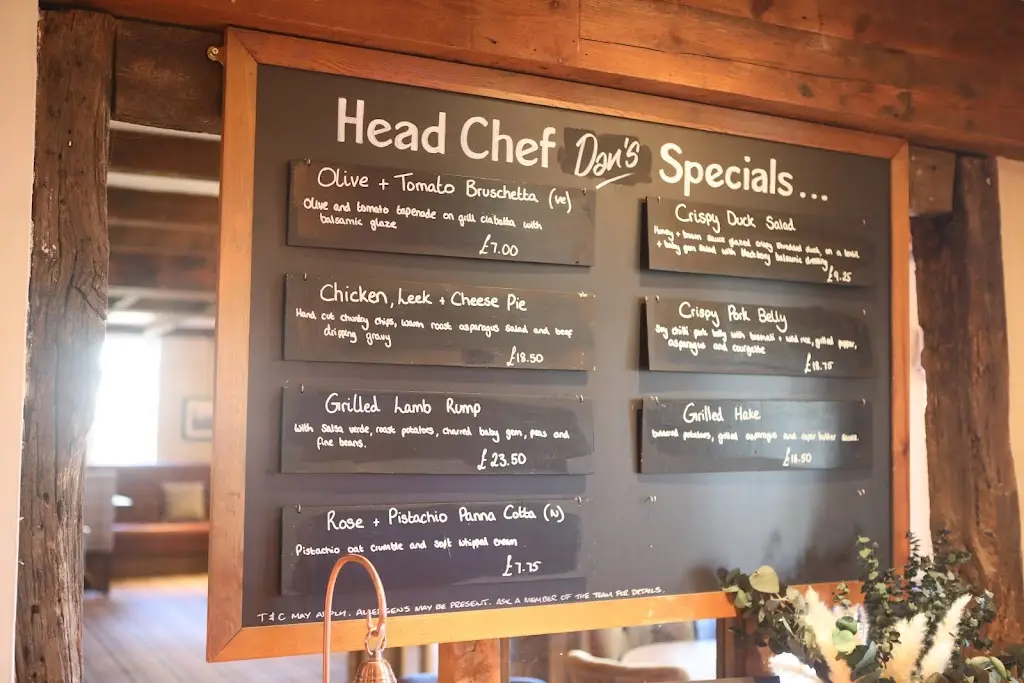 Head Chef Dan's Specials...
Olive + Tomato Bruschetta (ve)
Olive and tomato tapenade on grill ciabatta with
balsamic glaze
£7.00
Chicken, Leek + Cheese Pie
Hand cut chunky chips, warm roast asparagus salad and beef
dripping gravy
£18.50
Grilled Lamb Rump
With salsa verde, roast potatoes, charred baby gem, peas and
fine beans.
£23.50
Rose + Pistachio Panna Cotta (N)
Pistachio oat crumble and soft whipped cream
£7.75
Crispy Duck Salad
Honey + sauce glazed crispy shredded duck, on a
+ baby gem salad with blackberry balsamic dressing
£9.25
Crispy Pork Belly
chilli pork belly with basmati + wild rice, grilled pepper,
asparagus and courgette
£18.75
Grilled Hake
potatoes, grilled asparagus and caper butter sauce.
£18.50
T & C MAY APPLY. ALLERGENS MAY BE PRESENT. ASK A MEMBER OF THE TEAM FOR DETAILS.